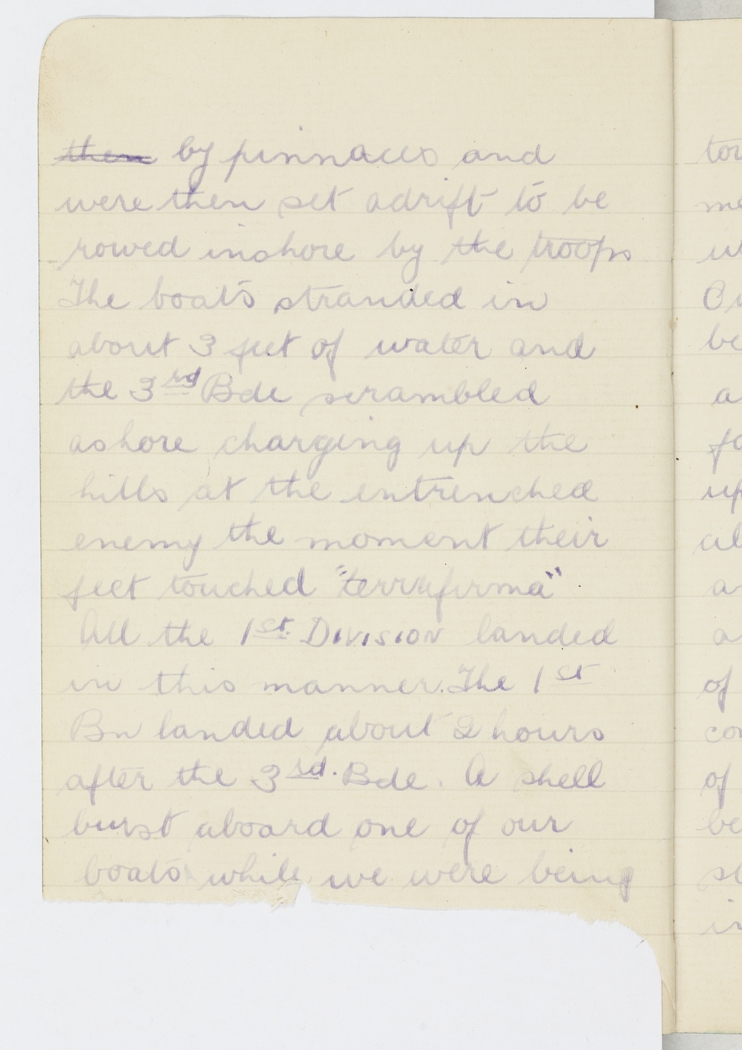 ~~then~~ by pinnaces and
were then set adrift to be
rowed inshore by the troops
The boats stranded in
about 3 feet of water and
the 3rd Bde scrambled
ashore charging up the
hills at the entrenched
enemy the moment their
feet touched "terrafirma"
All the 1st. DIVISION landed
in this manner. The 1st
Bn landed about 2 hours
after the 3rd. Bde. A shell
burst aboard one of our
boats while we were being